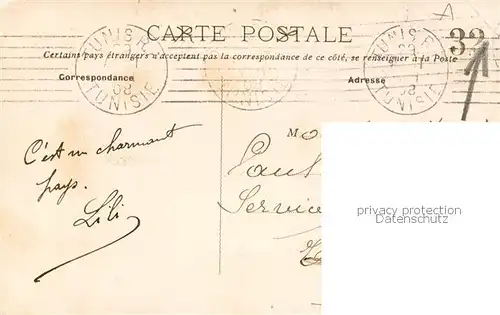 CARTE POSTALE
Certains pays étrangers n'acceptent pas la correspondance de ce côté, se renseigner à la Poste
Correspondance
Adresse
TUNIS
TUNISIE
TUNIS
TUNISIE
C'est un charmant
pays.
Lili
M
Service
privacy protection
Datenschutz